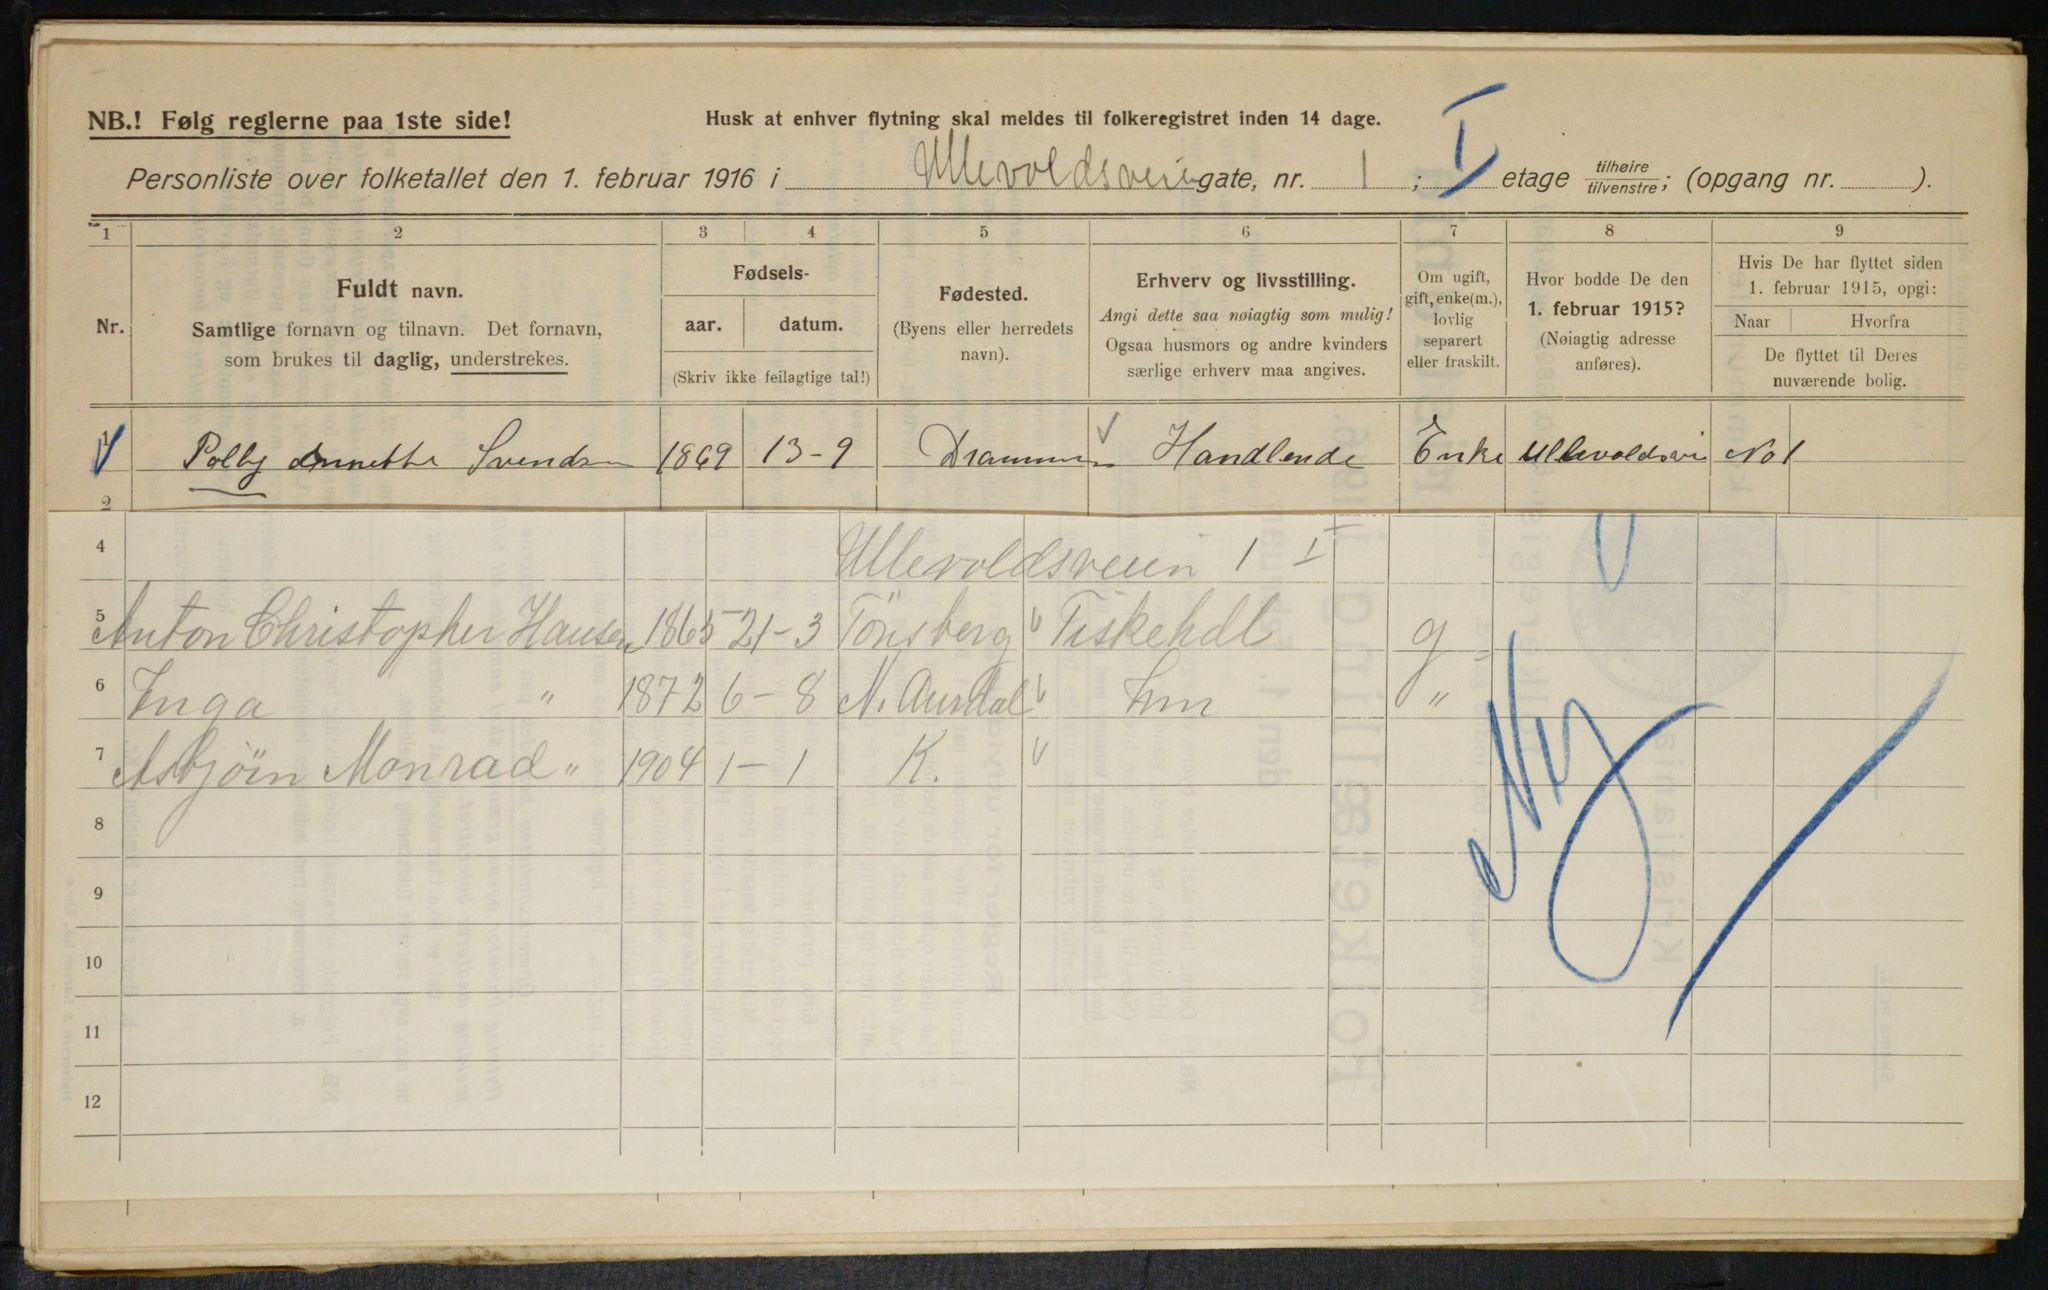 NB.! Følg reglerne paa 1ste side!
Husk at enhver flytning skal meldes til folkeregistret inden 14 dage.
Personliste over folketallet den 1. februar 1916 i Ullevoldsveien gate, nr. 1; I etage tilhøire/tilvenstre; (opgang nr. ).
1 2 3 4 5 6 7 8 9
Nr.
Fuldt navn.
Samtlige fornavn og tilnavn. Det fornavn,
som brukes til daglig, understrekes.
Fødsels-
aar. datum.
(Skriv ikke feilagtige tal!)
Fødested.
(Byens eller herredets
navn).
Erhverv og livsstilling.
Angi dette saa nøiagtig som mulig!
Ogsaa husmors og andre kvinders
særlige erhverv maa angives.
Om ugift,
gift, enke(m.),
lovlig
separert
eller fraskilt.
Hvor bodde De den
1. februar 1915?
(Nøiagtig adresse
anføres).
Hvis De har flyttet siden
1. februar 1915, opgi:
Naar Hvorfra
De flyttet til Deres
nuværende bolig.
1 Polly Annette Svendsen 1869 13-9 Drammen Handlende Enke Ullevoldsvei No 1
2
4 Ullevoldsveien 1 I
5 Anton Christopher Hansen 1865 21-3 Tönsberg Fiskehdl g
6 Inga " 1872 6-8 N. Aurdal hm "
7 Asbjörn Monrad " 1904 1-1 K.
Ny
8
9
10
11
12